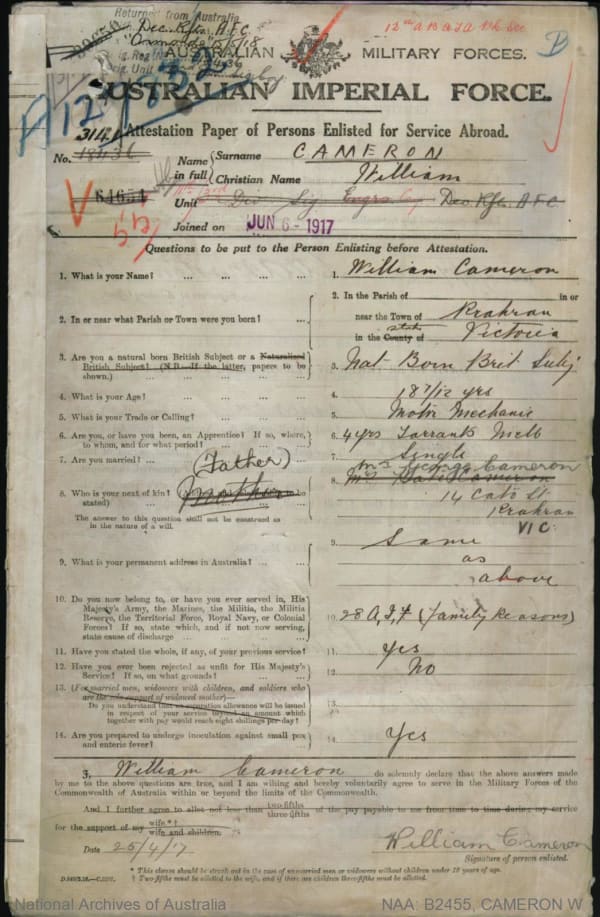 Returned from Australia
Dec. Rfts. A.F.C.
AUSTRALIAN MILITARY FORCES.
AUSTRALIAN IMPERIAL FORCE.
A 12/832
B
Attestation Paper of Persons Enlisted for Service Abroad.
No. 18436
64654
Name in full
Surname CAMERON
Christian Name William
Unit Div Sig Engrs Dec Rfts. A F C
Joined on JUN 6 - 1917
Questions to be put to the Person Enlisting before Attestation.
1. What is your Name? ... 1. William Cameron
2. In or near what Parish or Town were you born? ... 2. In the Parish of in or
near the Town of Prahran
in the County of state Victoria
3. Are you a natural born British Subject or a Naturalised
British Subject? (N.B.—If the latter, papers to be
shown.) 3. Nat Born Brit Subj
4. What is your Age? ... 4. 18 7/12 yrs
5. What is your Trade or Calling? ... 5. Motor Mechanic
6. Are you, or have you been, an Apprentice? If so, where,
to whom, and for what period? 6. 4 yrs Tarrants Melb
7. Are you married? ... 7. Single
8. Who is your next of kin? (Father) Mother to be
stated) 8. Cameron
Cameron
14 Cato St
Prahran
VIC.
The answer to this question shall not be construed as
in the nature of a will.
9. What is your permanent address in Australia? ... 9. Same
as
above
10. Do you now belong to, or have you ever served in, His
Majesty's Army, the Marines, the Militia, the Militia
Reserve, the Territorial Force, Royal Navy, or Colonial
Forces? If so, state which, and if not now serving,
state cause of discharge ... 10. 28 A.I.F (family Reasons)
11. Have you stated the whole, if any, of your previous service? 11. Yes
12. Have you ever been rejected as unfit for His Majesty's
Service? If so, on what grounds? ... 12. No
13. (For married men, widowers with children, and soldiers who
are the sole support of widowed mother)—
Do you understand that no separation allowance will be issued
in respect of your service beyond an amount which
together with pay would reach eight shillings per day? 13.
14. Are you prepared to undergo inoculation against small pox
and enteric fever? 14. Yes
I, William Cameron do solemnly declare that the above answers made
by me to the above questions are true, and I am willing and hereby voluntarily agree to serve in the Military Forces of the
Commonwealth of Australia within or beyond the limits of the Commonwealth.
And I further agree to allot not less than two-fifths three-fifths of the pay payable to me from time to time during my service
for the support of my wife*† wife and children.
Date 25/4/17 William Cameron
Signature of person enlisted.
* This clause should be struck out in the case of unmarried men or widowers without children under 18 years of age.
† Two-fifths must be allotted to the wife, and if there are children three-fifths must be allotted.
National Archives of Australia NAA: B2455, CAMERON W